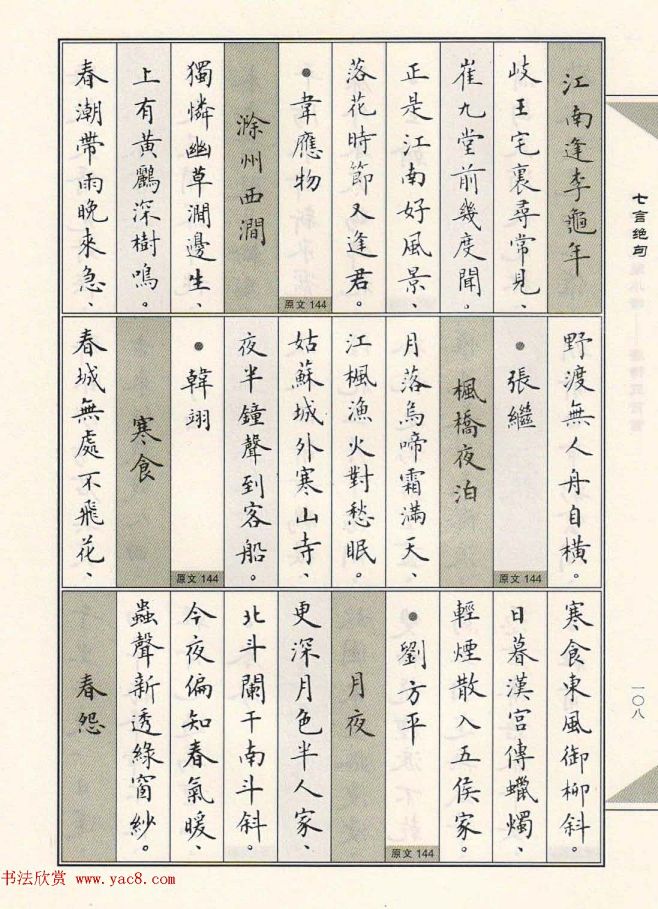 江南逢李龜年
岐王宅裏尋常見、
崔九堂前幾度聞。
正是江南好風景、
落花時節又逢君。
•韋應物
原文144
滁州西澗
獨憐幽草澗邊生、
上有黃鸝深樹鳴。
春潮帶雨晚來急、
野渡無人舟自橫。
•張繼
原文144
楓橋夜泊
月落烏啼霜滿天、
江楓漁火對愁眠。
姑蘇城外寒山寺、
夜半鐘聲到客船。
•韓翃
原文144
寒食
春城無處不飛花、
寒食東風御柳斜。
日暮漢宮傳蠟燭、
輕煙散入五侯家。
•劉方平
原文144
月夜
更深月色半人家、
北斗闌干南斗斜。
今夜偏知春氣暖、
蟲聲新透綠窗紗。
春怨
七言绝句
一〇八
书法欣赏 www.yac8.com